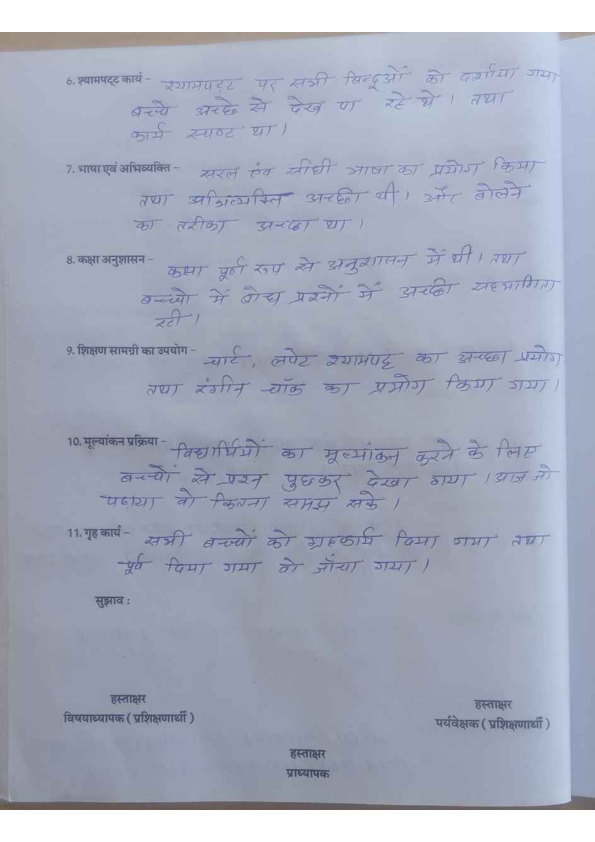 6. श्यामपट्ट कार्य – श्यामपट्ट पर सभी बिन्दूओं को दर्शाया गया
बच्चे अच्छे से देख पा रहे थे । तथा
कार्य स्पष्ट था ।
7. भाषा एवं अभिव्यक्ति – सरल एंव सीधी भाषा का प्रयोग किया
तथा अभिव्यक्ति अच्छी थी। और बोलने
का तरीका अच्छा था ।
8. कक्षा अनुशासन – कक्षा पूर्ण रूप से अनुशासन में थी। तथा
बच्चो में बोध प्रश्नों में अच्छी सहभागिता
रही ।
9. शिक्षण सामग्री का उपयोग – चार्ट, लपेट श्यामपट्ट का अच्छा प्रयोग
तथा रंगीन चॉक का प्रयोग किया गया ।
10. मूल्यांकन प्रक्रिया – विद्यार्थियों का मूल्यांकन करने के लिए
बच्चों से प्रश्न पुछकर देखा गया । आज जो
पढाया वो कितना समझ सके ।
11. गृह कार्य – सभी बच्चों को ग्रहकार्य दिया गया तथा
पूर्व दिया गया वो जाँचा गया ।
सुझाव :
हस्ताक्षर
विषयाध्यापक ( प्रशिक्षणार्थी )
हस्ताक्षर
पर्यवेक्षक ( प्रशिक्षणार्थी )
हस्ताक्षर
प्राध्यापक